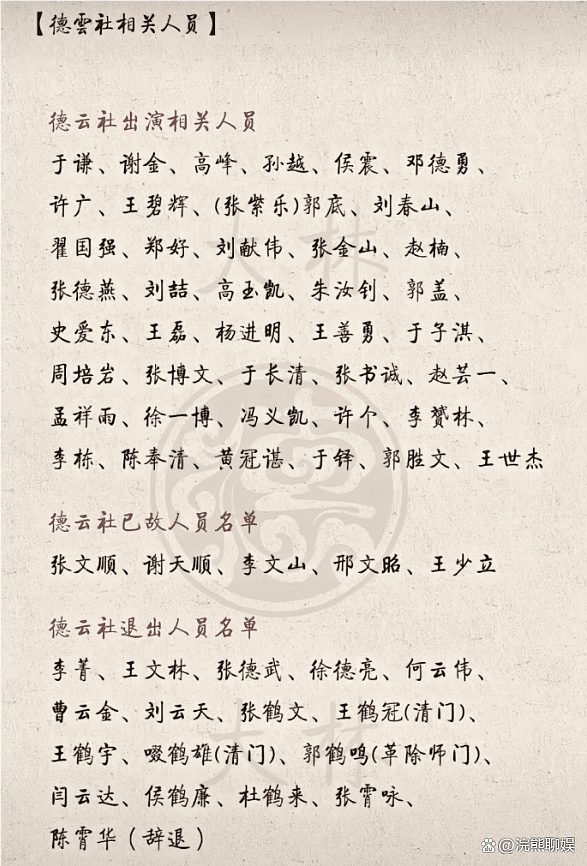 【德雲社相关人员】
德云社出演相关人员
于谦、谢金、高峰、孙越、侯震、邓德勇、
许广、王碧辉、(张紫乐)郭底、刘春山、
翟国强、郑好、刘献伟、张金山、赵楠、
张德燕、刘喆、高玉凯、朱汝钊、郭盖、
史爱东、王磊、杨进明、王善勇、于子淇、
周培岩、张博文、于长清、张书诚、赵芸一、
孟祥雨、徐一博、冯义凯、许个、李赟林、
李栋、陈奉清、黄冠谌、于铎、郭胜文、王世杰
德云社已故人员名单
张文顺、谢天顺、李文山、邢文昭、王少立
德云社退出人员名单
李菁、王文林、张德武、徐德亮、何云伟、
曹云金、刘云天、张鹤文、王鹤冠(清门)、
王鹤宇、啜鹤雄(清门)、郭鹤鸣(革除师门)、
闫云达、侯鹤廉、杜鹤来、张霄咏、
陈霄华(辞退)
大林
大林
@浣熊聊娱